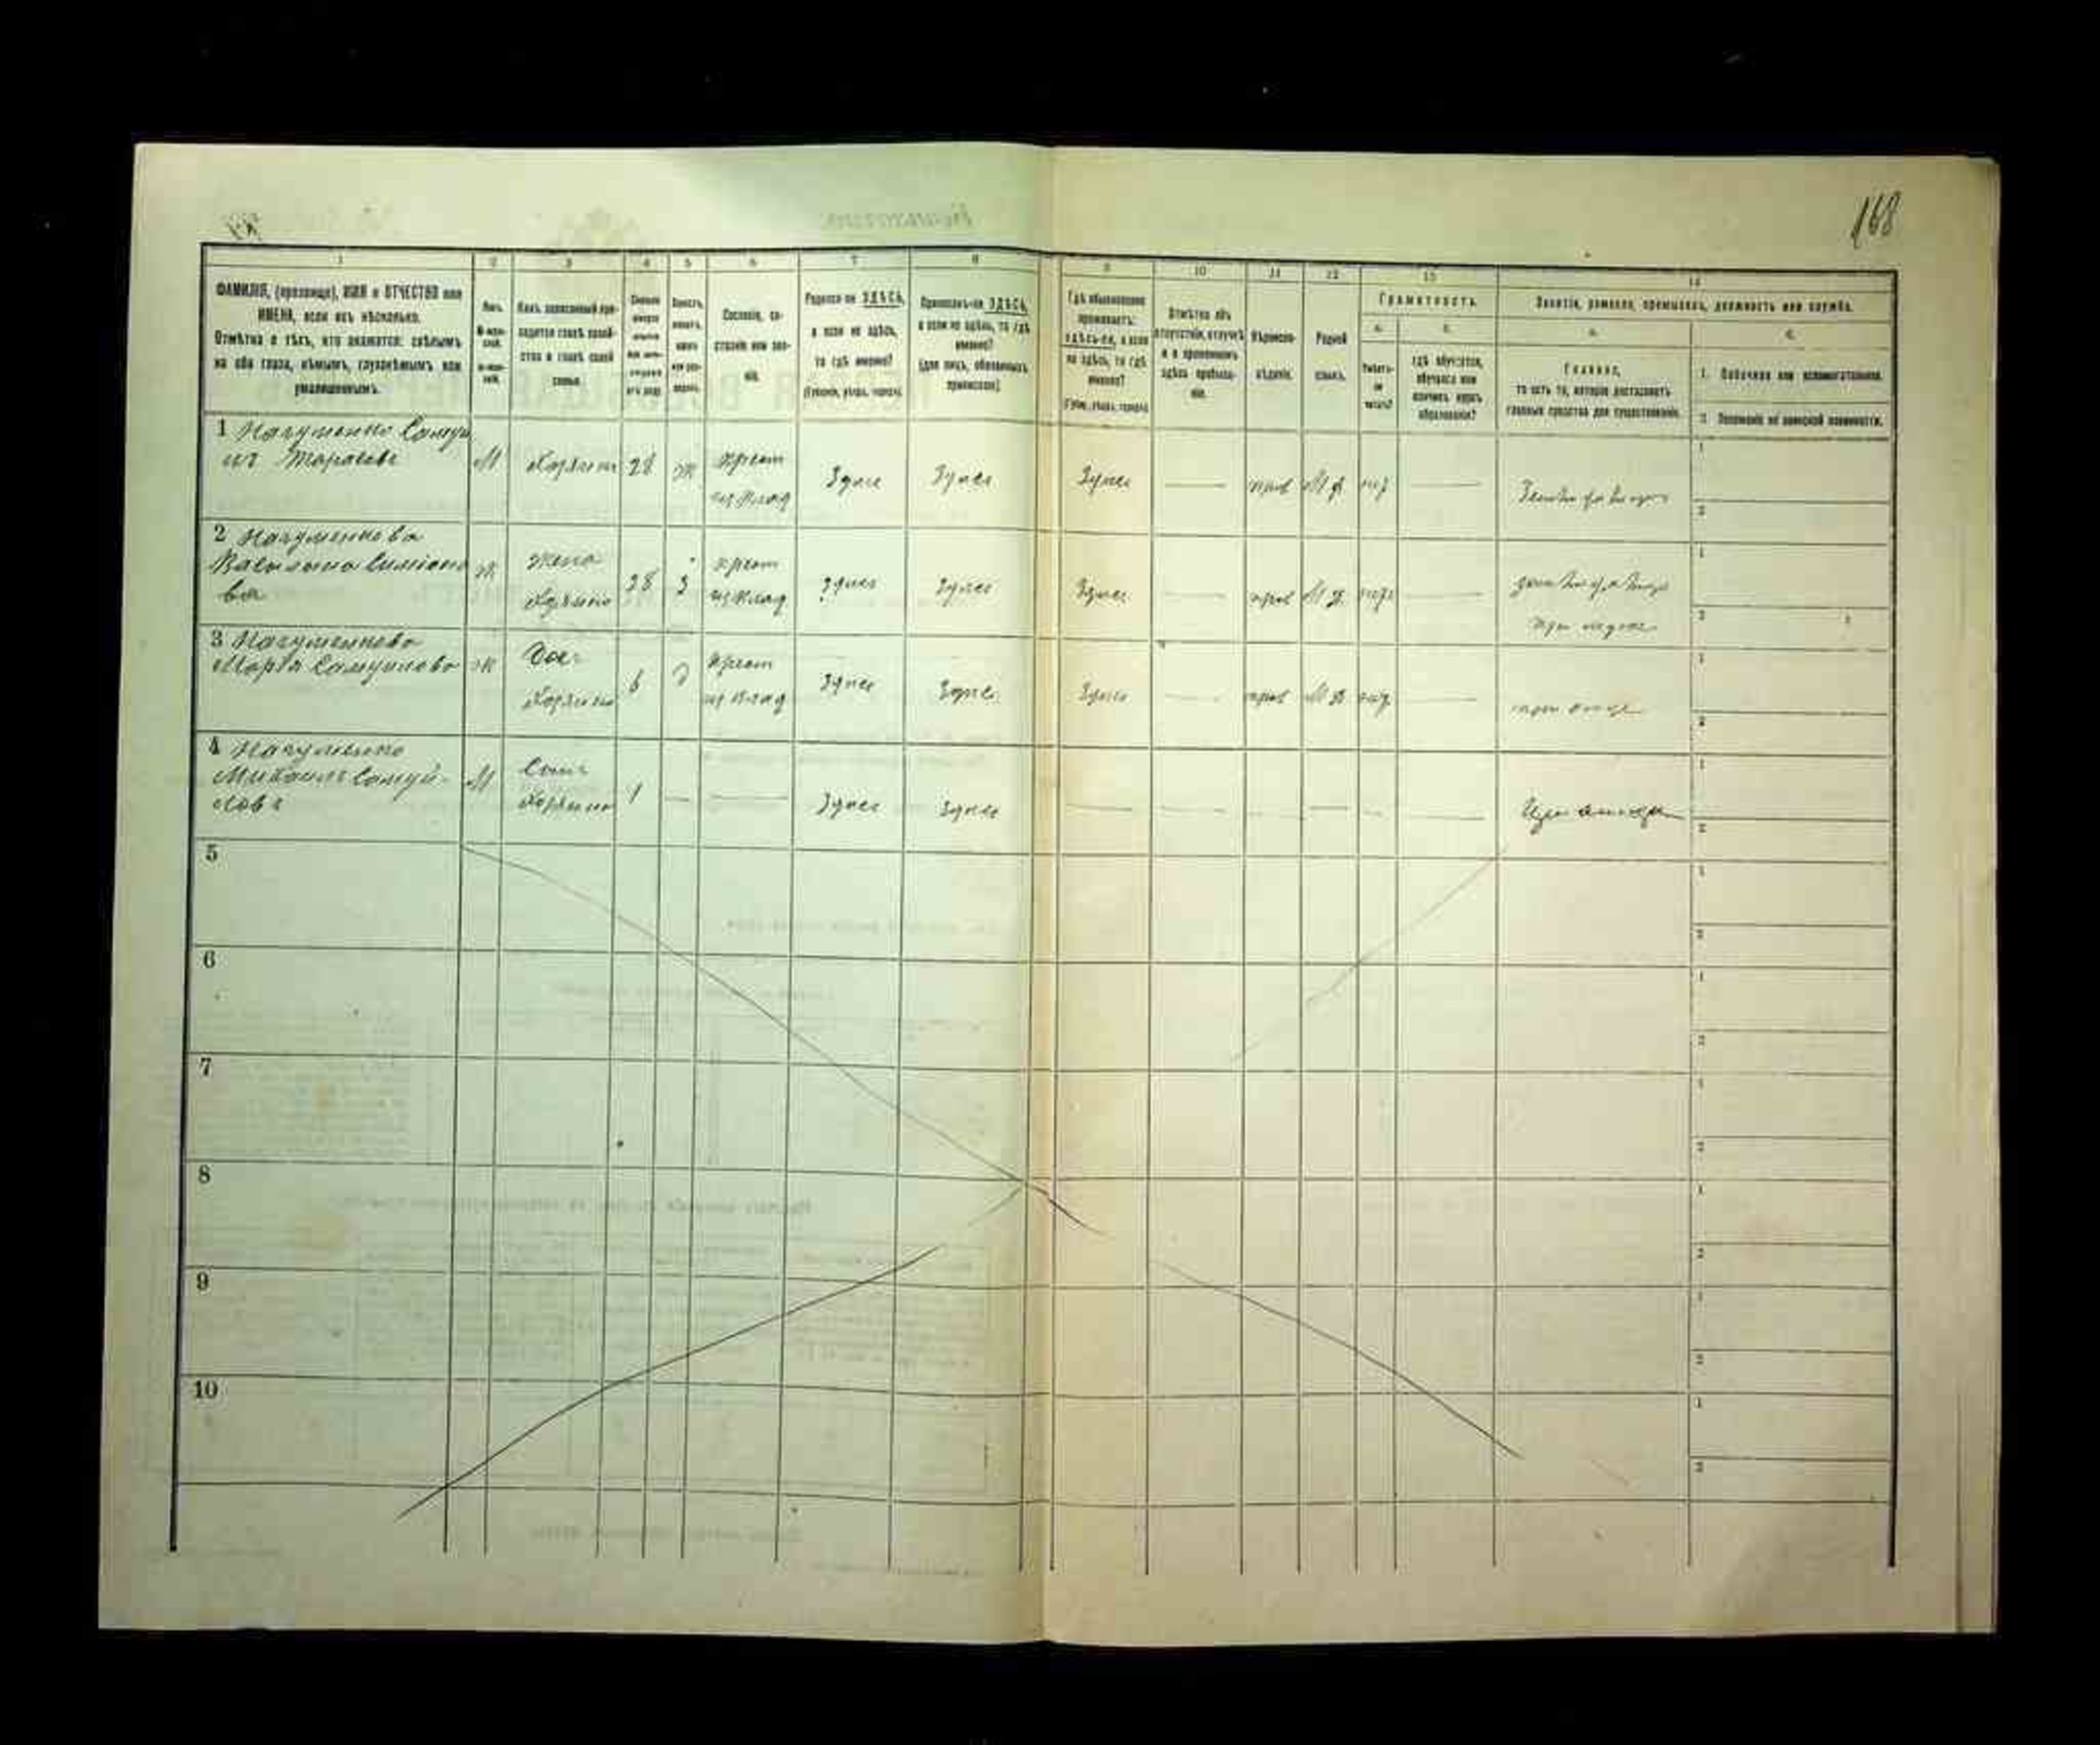 168
1 2 3 4 5 6 7 8 9 10 11 12 13 14
ФАМИЛІЯ, (прозвище), ИМЯ и ОТЧЕСТВО или
ИМЕНА, если ихъ нѣсколько.
Отмѣтка о тѣхъ, кто окажется: слѣпымъ
на оба глаза, нѣмымъ, глухонѣмымъ или
умалишеннымъ.
Полъ.
Какъ записанный при-
ходится главѣ хозяй-
ства и главѣ своей
семьи.
Сословіе, со-
стояніе или зва-
ніе.
Родился-ли ЗДѢСЬ,
а если не здѣсь,
то гдѣ именно?
(Губернія, уѣздъ, городъ)
Приписанъ-ли ЗДѢСЬ,
а если не здѣсь, то гдѣ
именно?
(для лицъ, обязанныхъ
припискою)
Гдѣ обыкновенно
проживаетъ:
здѣсь-ли, а если
не здѣсь, то гдѣ
именно?
(Губ., уѣздъ, городъ)
Отмѣтка объ
отсутствіи, отлучкѣ
и о временномъ
здѣсь пребыва-
ніи.
Вѣроиспо-
вѣданіе.
Родной
языкъ.
Грамотность.
а.
Умѣетъ-
ли
читать?
б.
гдѣ обучается,
обучался или
кончилъ курсъ
образованія?
Занятіе, ремесло, промыселъ, должность или служба.
а.
Главное,
то есть то, которое доставляетъ
главныя средства для существованія.
б.
1. Побочное или вспомогательное.
2. Положеніе по воинской повинности.
1 Науменко Самуи
илъ Тарасовъ
М
Хозяинъ
28
Ж
крест
из влад
Здесь
Здесь
Здесь
прав
М р
нет
1
2
2 Науменкова
Василина Симіоно
ва
Ж
Жена
Хозяина
28
З
крест
из влад
Здесь
Здесь
Здесь
прав
М р
нет
при муже
1
2
3 Науменкова
Марія Самуилова
Ж
Доч
Хозяина
6
Д
крест
из влад
Здесь
Здесь
Здесь
прав
М р
нет
при отце
1
2
4 Науменко
Михаилъ Самуй-
ловъ
М
Сынъ
Хозяина
1
Здесь
Здесь
При отце
1
2
5
1
2
6
1
2
7
1
2
8
1
2
9
1
2
10
1
2